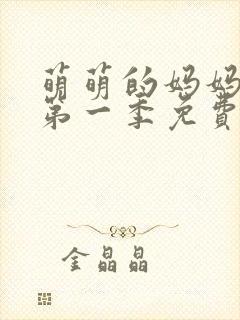 萌萌的妈妈
第一季免費
金晶晶